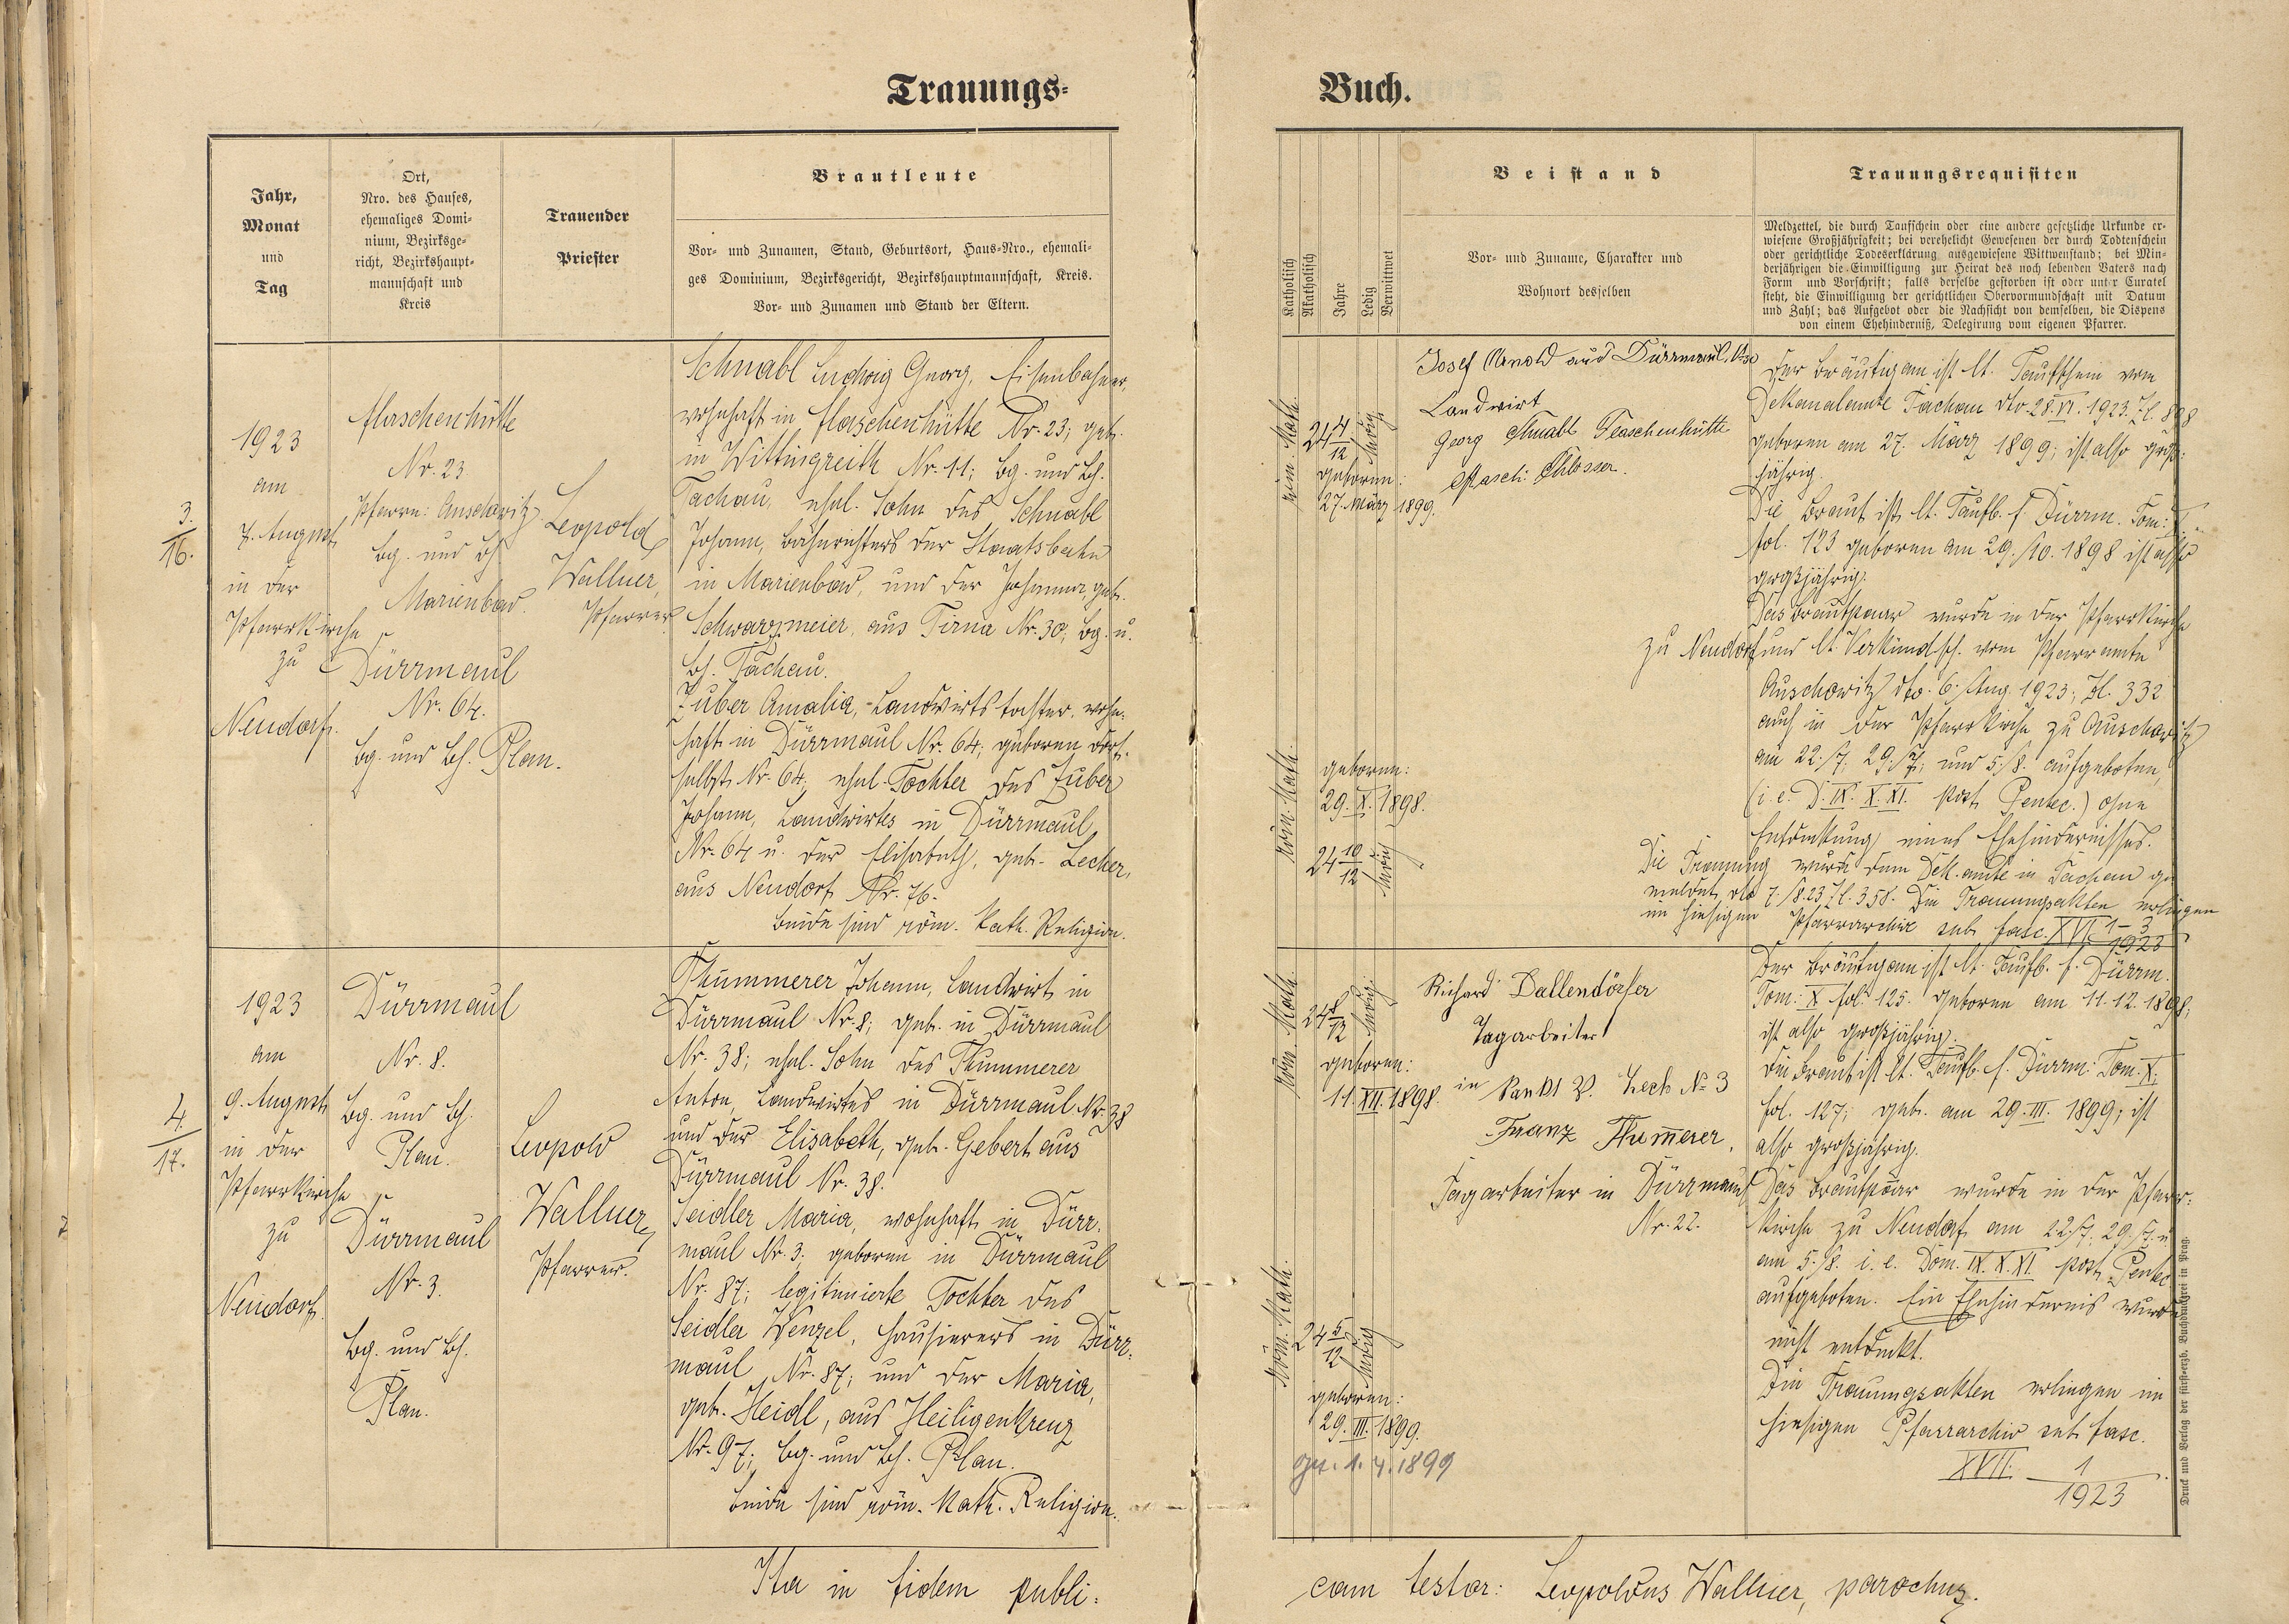 Trauungs-
Jahr,
Monat
und
Tag
Ort,
Nro. des Hauses,
ehemaliges Domi-
nium, Bezirksge-
richt, Bezirkshaupt-
mannschaft und
Kreis
Trauender
Priester
Brautleute
Vor- und Zunamen, Stand, Geburtsort, Haus-Nro., ehemali-
ges Dominium, Bezirksgericht, Bezirkshauptmannschaft, Kreis.
Vor- und Zunamen und Stand der Eltern.
3.
16.
1923
am
7. August
in der
Pfarrkirche
zu
Neudorf.
Flaschenhütte
Nr. 23
Pfarre: Auschowitz
Bg. und Bh.
Marienbad.
Dürrmaul
Nr. 64.
Bg. und Bh. Plan.
Leopold
Wallner,
Pfarrer
Schnabl Ludwig Georg, Eisenbahner,
wohnhaft in Flaschenhütte Nr. 23; geb.
in Wittingreith Nr. 11; Bg. und Bh.
Tachau, ehel. Sohn des Schnabl
Johann, Bahnrichters der Staatsbahn
in Marienbad, und der Johanna, geb.
Schwarzmeier, aus Tirna Nr. 30, Bg. u.
Bh. Tachau.
Zuber Amalia, Landwirtstochter, wohn-
haft in Dürrmaul Nr. 64; geboren dort-
selbst Nr. 64, ehel. Tochter des Zuber
Johann, Landwirtes in Dürrmaul
Nr. 64 u. der Elisabeth, geb. Lecker,
aus Neudorf Nr. 76.
Beide sind röm. kath. Religion.
4.
17.
1923
am
9. August
in der
Pfarrkirche
zu
Neudorf.
Dürrmaul
Nr. 8.
Bg. und Bh.
Plan.
Dürrmaul
Nr. 3.
Bg. und Bh.
Plan.
Leopold
Wallner,
Pfarrer.
Thummerer Johann, Landwirt in
Dürrmaul Nr. 8; geb. in Dürrmaul
Nr. 38; ehel. Sohn des Thummerer
Anton, Landwirtes in Dürrmaul Nr. 38
und der Elisabeth, geb. Gebert aus
Dürrmaul Nr. 38.
Seidler Maria, wohnhaft in Dürr-
maul Nr. 3; geboren in Dürrmaul
Nr. 87; legitimierte Tochter des
Seidler Wenzel, Hausierers in Dürr-
maul Nr. 87; und der Maria,
geb. Heidl, aus Heiligenkreuz
Nr. 97; Bg. und Bh. Plan.
Beide sind röm. kath. Religion.
Ita in fidem publi-
Buch.
Katholisch
Akatholisch
Jahre
Ledig
Verwittwet
Beistand
Vor- und Zuname, Charakter und
Wohnort desselben
Trauungsrequisiten
Meldzettel, die durch Taufschein oder eine andere gesetzliche Urkunde er-
wiesene Großjährigkeit; bei verehelicht Gewesenen der durch Todtenschein
oder gerichtliche Todeserklärung ausgewiesene Wittwenstand; bei Min-
derjährigen die Einwilligung zur Heirat des noch lebenden Vaters nach
Form und Vorschrift; falls derselbe gestorben ist oder unter Curatel
steht, die Einwilligung der gerichtlichen Obervormundschaft mit Datum
und Zahl; das Aufgebot oder die Nachsicht von demselben, die Dispens
von einem Ehehinderniß, Delegirung vom eigenen Pfarrer.
röm. kath.
24 4/12
ledig
geboren:
27. März 1899.
röm. kath.
geboren:
29. X. 1898.
24 10/12
ledig
Josef Arnold aus Dürrmaul,
Landwirt
Georg Schnabl Flaschenhütte
Masch. Schlosser.
Der Bräutigam ist lt. Taufschein vom
Dekanalamte Tachau dto. 28. VI. 1923. Zl. 898
geboren am 27. März 1899; ist also groß-
jährig.
Die Braut ist lt. Taufb. f. Dürrm. Tom: X.
fol. 123 geboren am 29./10. 1898 ist also
großjährig.
Das Brautpaar wurde in der Pfarrkirche
zu Neudorf und lt. Verkündsch. vom Pfarramte
Auschowitz dto. 6. Aug. 1923, Zl. 332
auch in der Pfarrkirche zu Auschowitz
am 22./7. 29./7. und 5./8. aufgeboten,
(i. e. D. IX. X. XI. post Pentec.) ohne
Entdeckung eines Ehehindernisses.
Die Trauung wurde dem Dek. amte in Tachau ge-
meldet, dto 7./8.23 Zl. 358. Die Trauungsakten erliegen
im hiesigen Pfarrarchiv sub fasc. XVII. 1-3
1923
röm. kath.
24 8/12
ledig
geboren:
11. XII. 1898.
röm. kath.
24 5/12
ledig
geboren:
29. III. 1899.
get. 1. 4. 1899
Richard Dallendörfer
Tagarbeiter
in Zeck No 3
Franz Thummerer,
Tagarbeiter in Dürrmaul
Nr. 22.
Der Bräutigam ist lt. Taufb. f. Dürrm.
Tom: X fol. 125. geboren am 11. 12. 1898,
ist also großjährig.
Die Braut ist lt. Taufb. f. Dürrm: Tom. X.
fol. 127; geb. am 29. III. 1899; ist
also großjährig.
Das Brautpaar wurde in der Pfarr-
kirche zu Neudorf am 22./7. 29./7. u.
am 5./8. i. e. Dom. IX. X. XI. post Pentec
aufgeboten. Ein Ehehindernis wurde
nicht entdeckt.
Die Trauungsakten erliegen im
hiesigen Pfarrarchiv sub fasc.
XVII. 1
1923
Druck und Verlag der fürst-erzb. Buchdruckerei in Prag.
cam testor: Leopoldus Wallner, parochus.